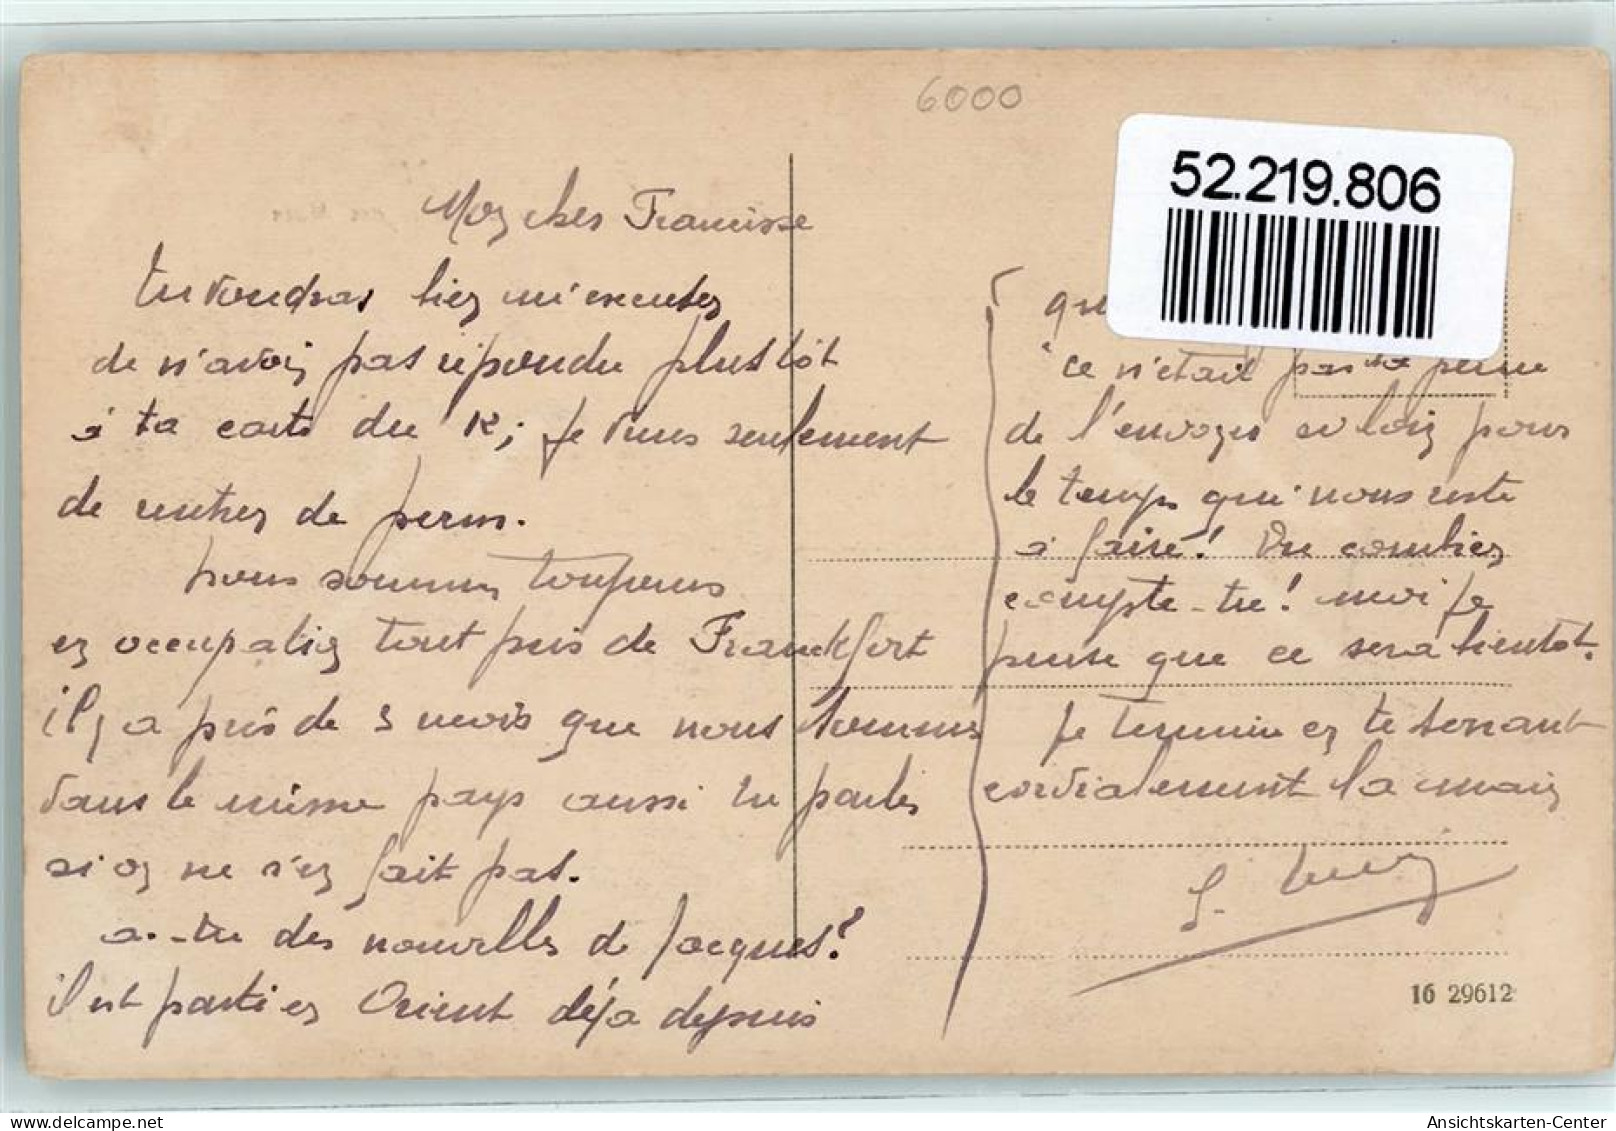 6000
52.219.806
Mon cher Francisse
Tu voudras bien m'excuser
de n'avoir pas répondu plustôt
à ta carte du 12; Je viens seulement
de rentrer de perm.
Nous sommes toujours
en occupation tout près de Franckfort
il y a près de 3 mois que nous sommes
dans le même pays aussi tu parles
si on ne s'en fait pas.
a-tu des nouvelles de Jacques?
il est parti en Orient déjà depuis
que
ce n'était pas la peine
de l'envoyer si loin pour
le temps qui nous reste
à faire! Du combien
compte-tu! moi je
pense que ce sera bientôt.
Je termine en te serrant
cordialement la main
16 29612
Ansichtskarten-Center